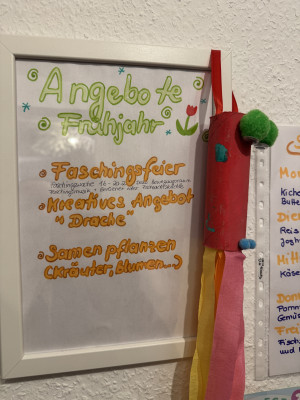 Angebote
Frühjahr
Faschingsfeier
Kreatives Angebot
"Drache"
Samen pflanzen
(Kräuter, Blumen...)
Mo
Kich
Butte
Die
Reis
Josh
Mitt
Käse
Don
Pomm
Gemüs
Frei
Fisch
und